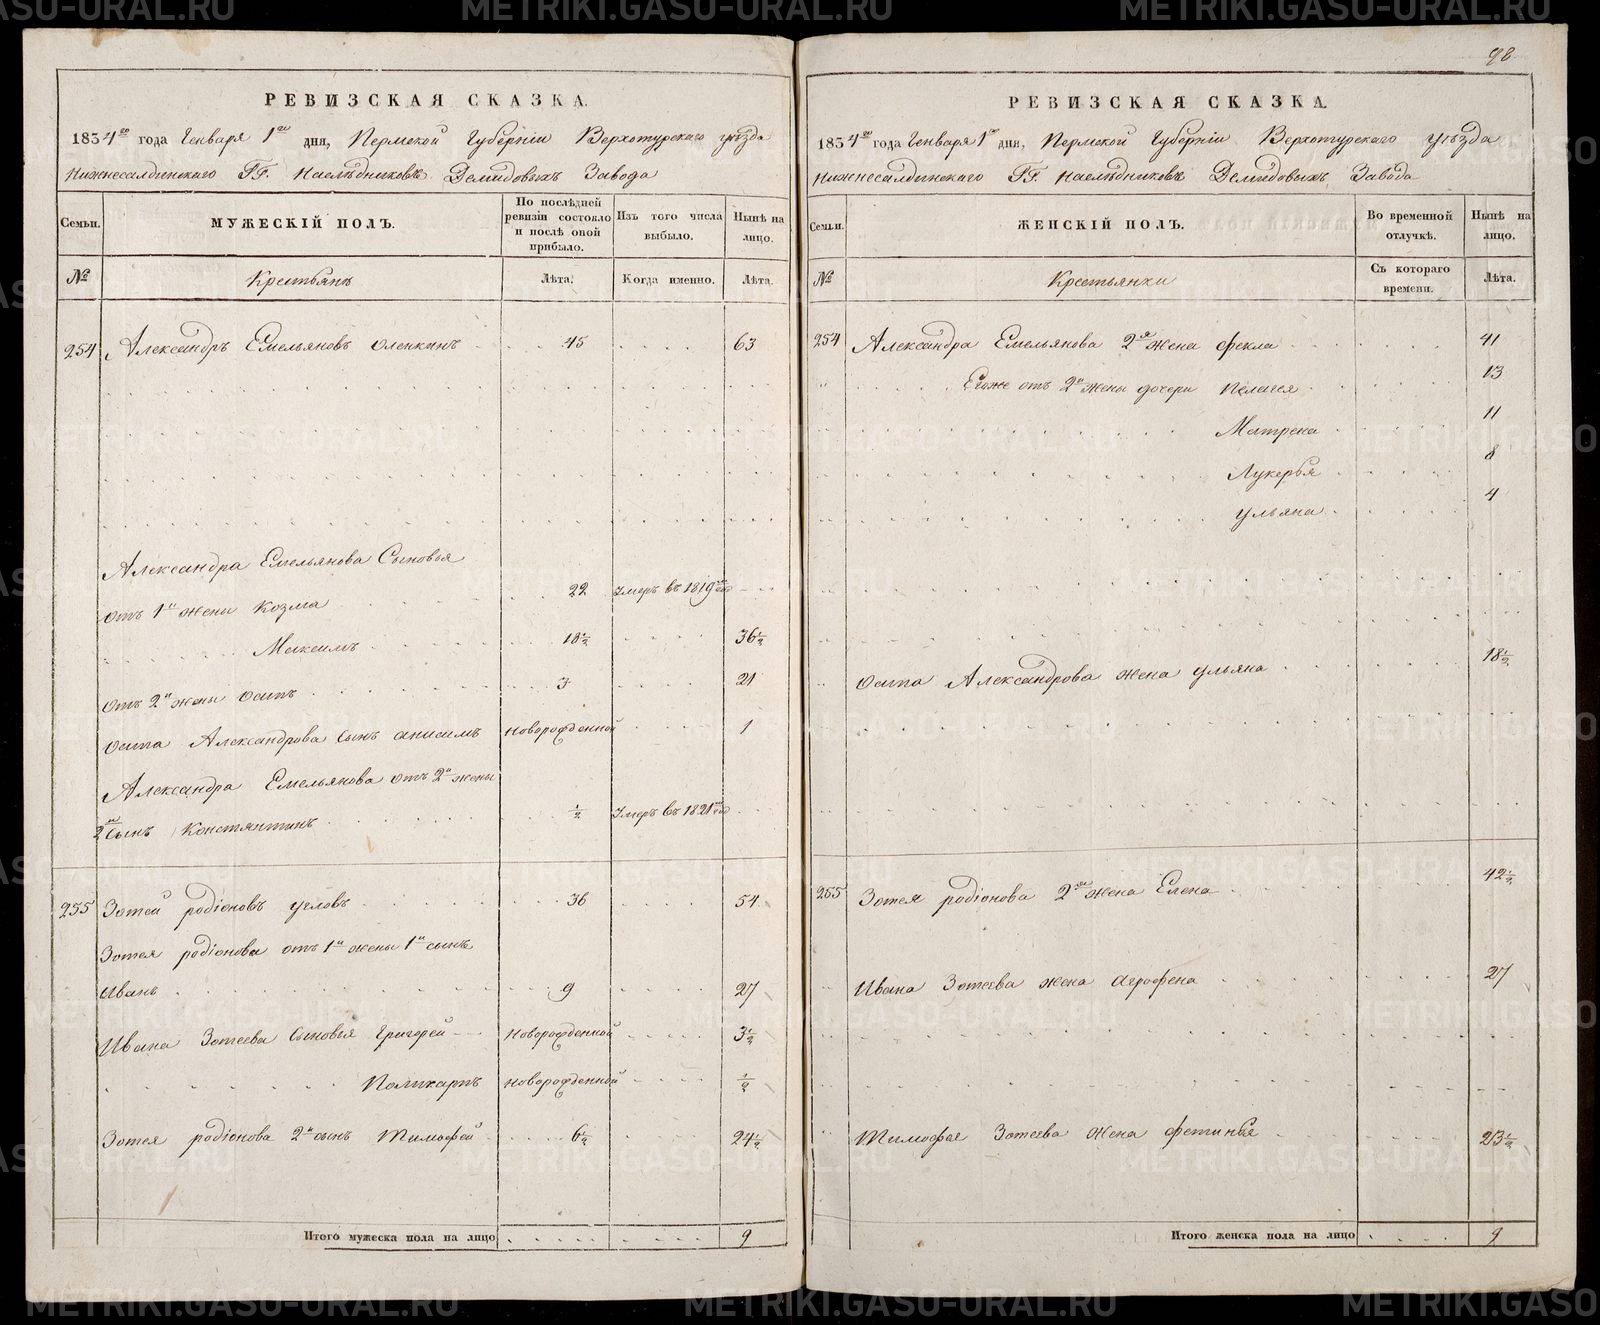 РЕВИЗСКАЯ СКАЗКА.
1834го года Генваря 1го дня, Пермской Губерніи Верхотурскаго уѣзда
Нижнесалдинскаго ГГ. Наслѣдниковъ Демидовыхъ Завода
Семьи.
МУЖЕСКІЙ ПОЛЪ.
По послѣдней ревизіи состояло и послѣ оной прибыло.
Изъ того числа выбыло.
Нынѣ на лицо.
№
Крестьянъ
Лѣта.
Когда именно.
Лѣта.
254 Александръ Емельяновъ Оленкинъ 45 63
Александра Емельянова Сыновья
отъ 1й жены Козма 22 Умеръ въ 1819м году
Максимъ 18½ 36½
отъ 2й жены Осипъ 3 21
Осипа Александрова сынъ Анисимъ новорожденной 1
Александра Емельянова отъ 2й жены
2й Сынъ Констянтинъ ½ Умеръ въ 1821м году
255 Зотей Родіоновъ Угловъ 36 54
Зотея Родіонова отъ 1й жены 1й сынъ
Иванъ 9 27
Ивана Зотеева Сыновья Григорей Новорожденной 3½
Поликарпъ новорожденной ½
Зотея Родіонова 2й сынъ Тимофей 6½ 24½
Итого мужеска пола на лицо 9
98
РЕВИЗСКАЯ СКАЗКА.
1834го года Генваря 1го дня, Пермской Губерніи Верхотурскаго уѣзда
Нижнесалдинскаго ГГ. Наслѣдниковъ Демидовыхъ Завода
Семьи.
ЖЕНСКІЙ ПОЛЪ.
Во временной отлучкѣ.
Нынѣ на лицо.
№
Крестьянки
Съ котораго времени.
Лѣта.
254 Александра Емельянова 2я жена Фекла 41
Егоже отъ 2й жены дочери Пелагея 13
Матрена 11
Лукерья 8
Ульяна 4
Осипа Александрова жена Ульяна 18½
255 Зотея Родіонова 2я жена Елена 42½
Ивана Зотеева жена Агрофена 27
Тимофея Зотеева жена Фетинья 23½
Итого женска пола на лицо 9
METRIKI.GASO-URAL.RU